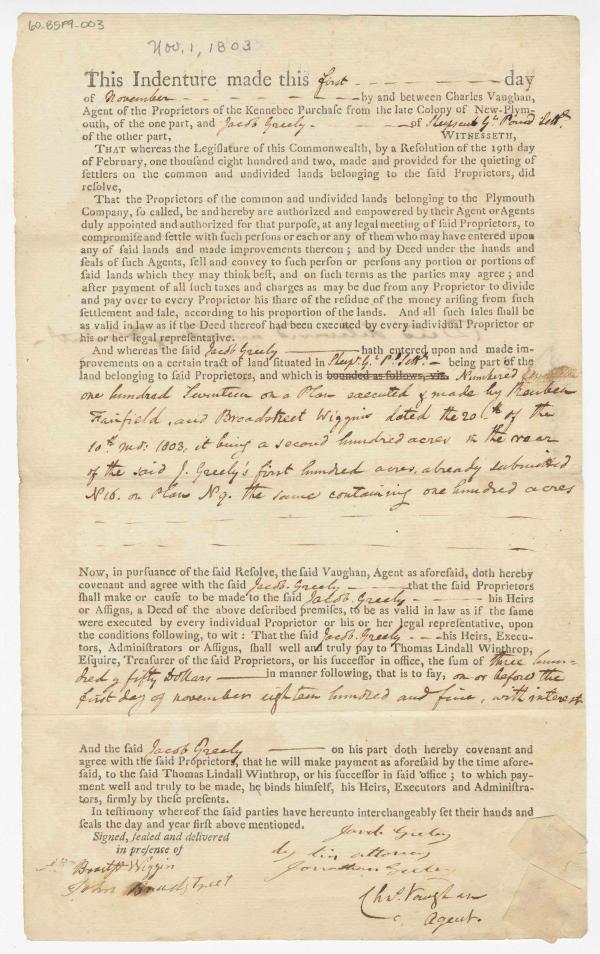 60-85F9-003
Nov. 1, 1803
This Indenture made this first day
of November by and between Charles Vaughan,
Agent of the Proprietors of the Kennebec Purchase from the late Colony of New-Plym-
outh, of the one part, and Jacob Greely of
of the other part, WITNESSETH,
THAT whereas the Legislature of this Commonwealth, by a Resolution of the 19th day
of February, one thousand eight hundred and two, made and provided for the quieting of
settlers on the common and undivided lands belonging to the said Proprietors, did
resolve,
That the Proprietors of the common and undivided lands belonging to the Plymouth
Company, so called, be and hereby are authorized and empowered by their Agent or Agents
duly appointed and authorized for that purpose, at any legal meeting of said Proprietors, to
compromise and settle with such persons or each or any of them who may have entered upon
any of said lands and made improvements thereon ; and by Deed under the hands and
seals of such Agents, sell and convey to such person or persons any portion or portions of
said lands which they may think best, and on such terms as the parties may agree ; and
after payment of all such taxes and charges as may be due from any Proprietor to divide
and pay over to every Proprietor his share of the residue of the money arising from such
settlement and sale, according to his proportion of the lands. And all such sales shall be
as valid in law as if the Deed thereof had been executed by every individual Proprietor or
his or her legal representative.
And whereas the said Jacob Greely hath entered upon and made im-
provements on a certain tract of land situated in being part of the
land belonging to said Proprietors, and which is bounded as follows, viz. Numbered
one hundred Seventeen on a Plan executed & made by Reuben
Fairfield, and Broadstreet Wiggins dated the 20th of the
10th mo: 1803, it being a second hundred acres in the rear
of the said J. Greely's first hundred acres, already submitted
N 16. on Plan N 9. the same containing one hundred acres
Now, in pursuance of the said Resolve, the said Vaughan, Agent as aforesaid, doth hereby
covenant and agree with the said Jacob Greely that the said Proprietors
shall make or cause to be made to the said Jacob Greely his Heirs
or Assigns, a Deed of the above described premises, to be as valid in law as if the same
were executed by every individual Proprietor or his or her legal representative, upon
the conditions following, to wit : That the said Jacob Greely his Heirs, Execu-
tors, Administrators or Assigns, shall well and truly pay to Thomas Lindall Winthrop,
Esquire, Treasurer of the said Proprietors, or his successor in office, the sum of three hun-
dred & fifty Dollars in manner following, that is to say; on or before the
first day of november eighteen hundred and five, with interest
And the said Jacob Greely on his part doth hereby covenant and
agree with the said Proprietors, that he will make payment as aforesaid by the time afore-
said, to the said Thomas Lindall Winthrop, or his successor in said office ; to which pay-
ment well and truly to be made, he binds himself, his Heirs, Executors and Administra-
tors, firmly by these presents.
In testimony whereof the said parties have hereunto interchangeably set their hands and
seals the day and year first above mentioned.
Signed, sealed and delivered
in presence of
Jacob Greely
by his attorney
Jonathan Greely
Bradst Wiggin
John Bradstreet
Chs. Vaughan
Agent.